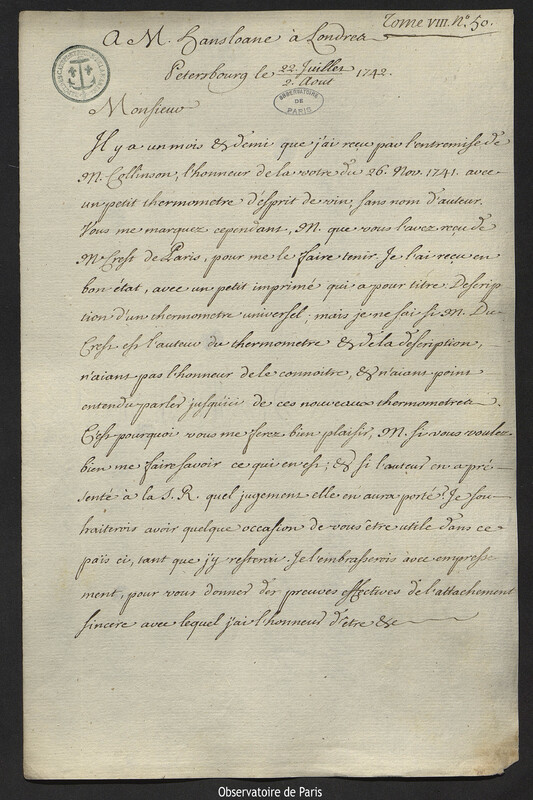 Tome VIII. N.º 50.
A M. Hansloane à Londres
Petersbourg le 22. Juillet / 2. Aout 1742.
OBSERVATOIRE DE PARIS
Monsieur
Il y a un mois & demi que j'ai reçu par l'entremise de
M. Collinson, l'honneur de la votre du 26. Nov. 1741. avec
un petit thermometre d'esprit de vin, sans nom d'auteur.
Vous me marquez cependant, M. que vous l'avez reçu de
M Crest de Paris, pour me le faire tenir. Je l'ai reçu en
bon état, avec un petit imprimé qui a pour titre Descrip-
tion d'un thermometre universel; mais je ne sai si M. Du
Crest est l'auteur du thermometre & de la description,
n'aiant pas l'honneur de le connoitre, & n'aiant point
entendu parler jusqu'ici de ces nouveaux thermometres.
C'est pourquoi vous me ferez bien plaisir, M. si vous voulez
bien me faire savoir ce qui en est; & si l'auteur en a pré-
senté à la S. R. quel jugement elle en aura porté? Je sou-
haiterois avoir quelque occasion de vous être utile dans ce
païs ci, tant que j'y resterai. Je l'embrasserois avec empresse-
ment, pour vous donner des preuves effectives de l'attachement
sincere avec lequel j'ai l'honneur d'etre &c
Observatoire de Paris